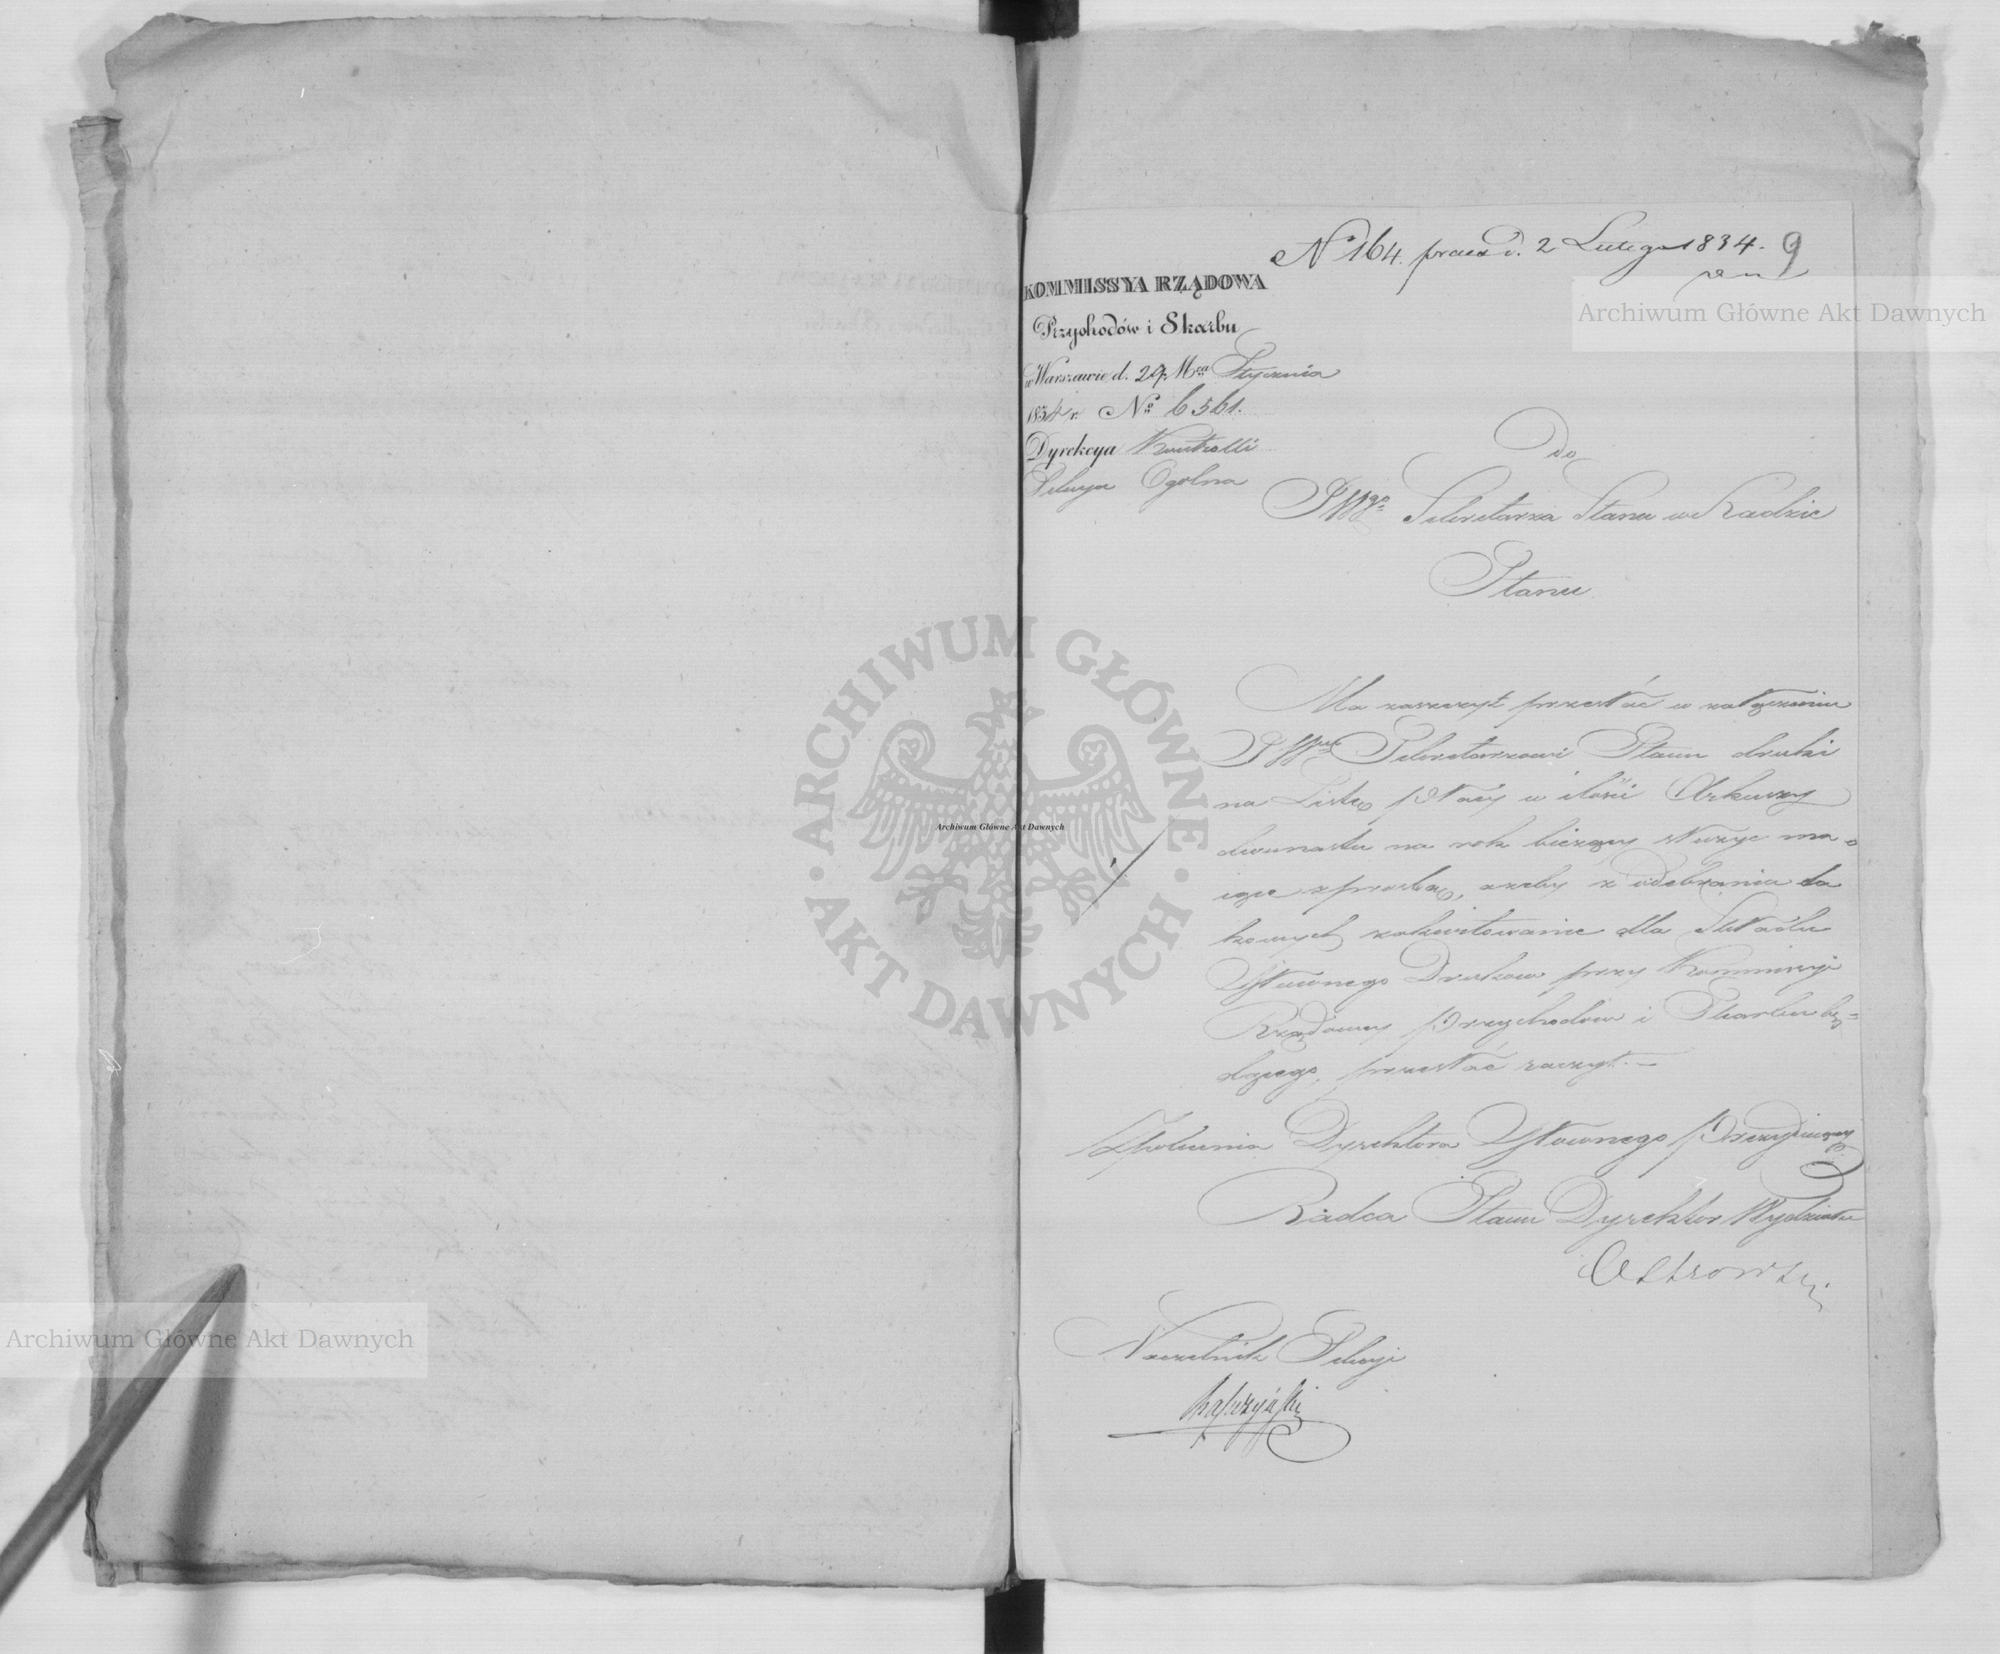 N° 164. praes d. 2 Lutego 1834. 9
KOMMISSYA RZĄDOWA
Przychodów i Skarbu
w Warszawie d. 29 Mca Stycznia
1834 r. No 6561.
Dyrekcya Kontrolli
Sekcya Ogolna
Do
JWgo Sekretarza Stanu w Radzie
Stanu
Ma zaszczyt przesłać w załączeniu
JWmu Sekretarzowi Stanu druki
na Listę płacy w ilości Arkuszy
dwunastu na rok bieżący służyć ma=
iące z prosbą, azeby z odebrania ta
kowych zakwitowanie dla Składu
Głównego Druków przy Kommissyi
Rządowey Przychodów i Skarbu bę=
dącego, przesłać raczył.—
Z polecenia Dyrektora Głównego Prezyduiącego
Radca Stanu Dyrektor Wydziału
Ostrowski
Naczelnik Sekcyi
Archiwum Główne Akt Dawnych
ARCHIWUM GŁÓWNE AKT DAWNYCH
Archiwum Główne Akt Dawnych
Archiwum Główne Akt Dawnych